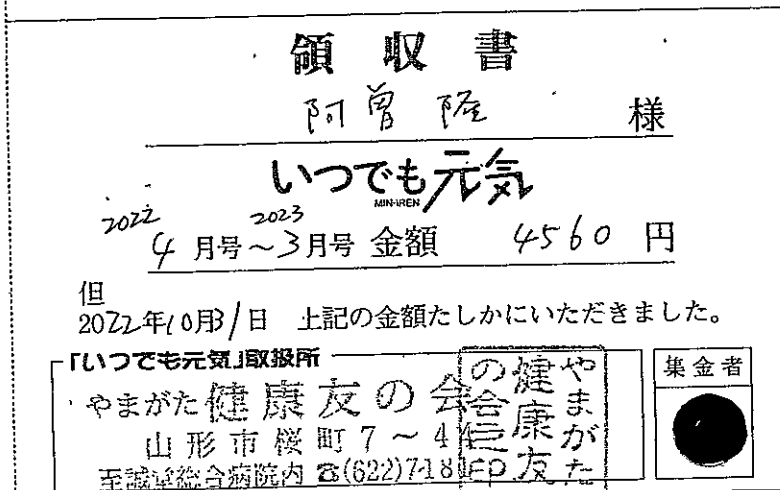 領収書
阿曽 隆 様
いつでも元気
MIN-IREN
2022 2023
4月号～3月号 金額 4560 円
但
2022年10月31日 上記の金額たしかにいただきました。
「いつでも元気」取扱所
やまがた健康友の会
山形市桜町7～44
至誠堂総合病院内 ☎(622)7181
やまがた
健康友
の会
印
集金者